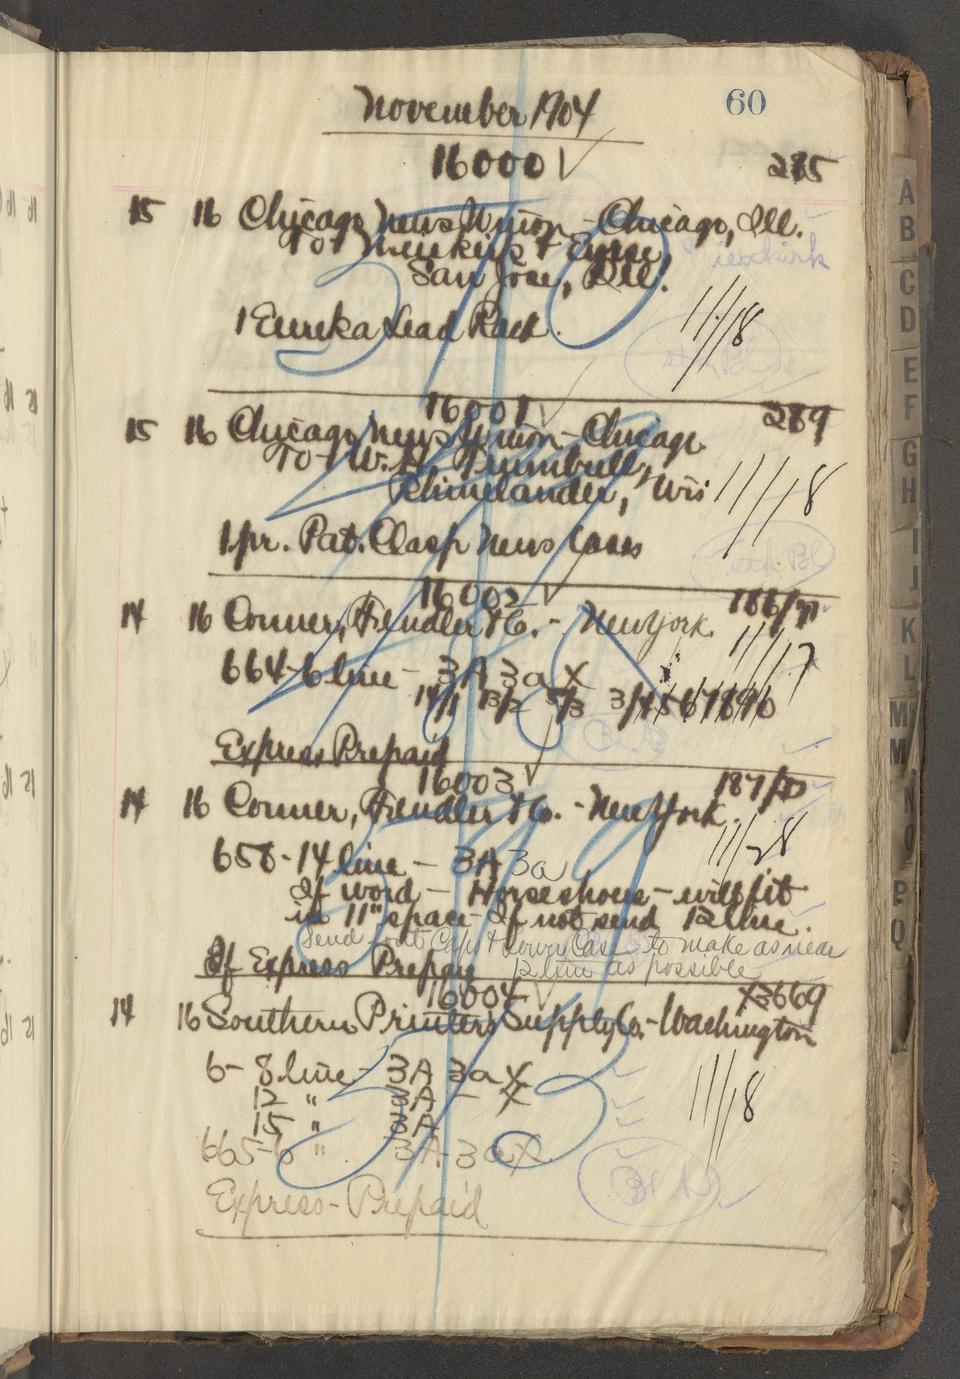 60
November 1904
16000 ✓
285
15 16 Chicago News Union - Chicago, Ill.
To + Eyrse,
San Jose, Ill.
1 Eureka Lead Rack.
11/18
16001 ✓
289
15 16 Chicago News Union - Chicago
To W. H. Trumbull,
Rhinelander, Wis
11/18
1 pr. Pat. Clasp News Cases
16002 ✓
14 16 Conner, Fendler & Co. - New York.
11/17
664-6 line - 3A 3a X
3/4567890
Express Prepaid
16003 ✓
14 16 Conner, Fendler & Co. - New York.
11/28
658-14 line - 3A 3a
If word - Horseshoes - will fit
in 11" space - If not send 12 line.
Send font Caps & Lower Case to make as near
12 line as possible
If Express Prepay
16004 ✓
X3669
14 16 Southern Printers Supply Co. - Washington
6 - 8 line - 3A 3a X
12 " 3A - X
15 " 3A
11/18
665-6 " 3A 3a X
Express - Prepaid
A
B
C
D
E
F
G
H
I
J
K
L
Mc
M
N
O
P
Q